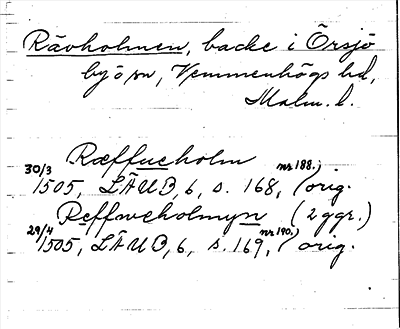 Rävholmen, backe i Örsjö
by o sn, Vemmenhögs hd,
Malm. l.
Ræffueholm
30/3 1505, LÄUB, 6, s. 168, nr 188. / orig.
Reffweholmyn (2 ggr.)
29/4 1505, LÄUB, 6, s. 169, nr 190. / orig.